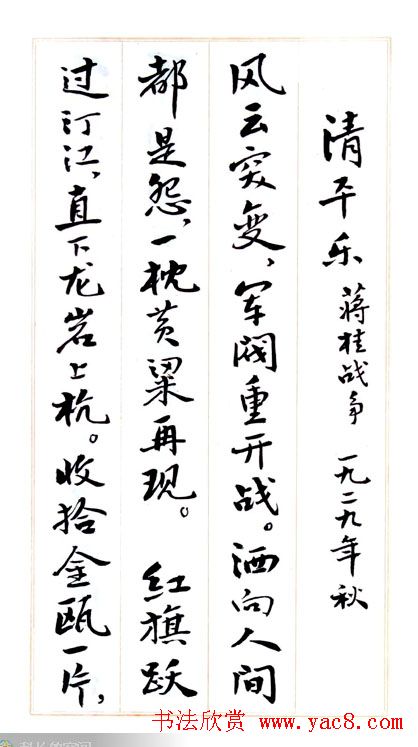 清平乐 蒋桂战争 一九二九年秋
风云突变，军阀重开战。洒向人间
都是怨，一枕黄粱再现。 红旗跃
过汀江，直下龙岩上杭。收拾金瓯一片，
书法欣赏 www.yac8.com